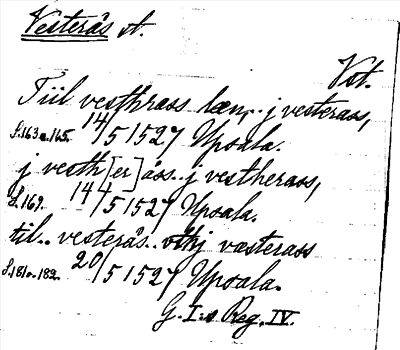 Vesterås st.
Vst.
Tiil vesthrass læn... j vesterass,
s. 163 o. 165. 14/5 1527 Upsala.
j vesth[er]åss. j vestherass,
s. 169. 14/5 1527 Upsala.
til.. vesterås.. vthj væsterass
s. 181 o. 182. 20/5 1527 Upsala.
G. I:s Reg. IV.